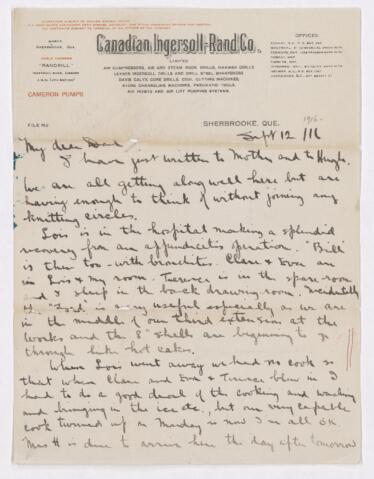 Canadian Ingersoll-Rand Co.
LIMITED
AIR COMPRESSORS, AIR AND STEAM ROCK DRILLS, HAMMER DRILLS
LEYNER INGERSOLL DRILLS AND DRILL STEEL SHARPENERS
DAVIS CALYX CORE DRILLS, COAL CUTTING MACHINES,
STONE CHANNELING MACHINES, PNEUMATIC TOOLS,
AIR HOISTS AND AIR LIFT PUMPING SYSTEMS.
WORKS
SHERBROOKE, QUE.
CABLE ADDRESS
"RANDRILL"
CAMERON PUMPS
OFFICES
FILE NO.
SHERBROOKE, QUE.
1916-
Sept 12 /16
My dear Dad.
I have just written to Mother and to Hugh.
We are all getting along well here but are
having enough to think of without joining any
knitting circles.
Lois is in the hospital making a splendid
recovery from an appendicitis operation. "Bill"
is there too - with bronchitis. Clare & Evan are
in Lois & my room. Terence is in the spare-room
and I sleep in the back drawing-room. Incidentally
"Ford" is very useful especially as we are
in the middle of our third extension at the
Works and the 8" shells are beginning to go
through like hot cakes.
When Lois went away we had no cook so
that when Clare and Evan & Terence blew in I
had to do a good deal of the cooking and washing
and bringing in the ice etc., but our very capable
cook turned up on Monday so now I'm all OK.
Mrs H is due to arrive here the day after tomorrow